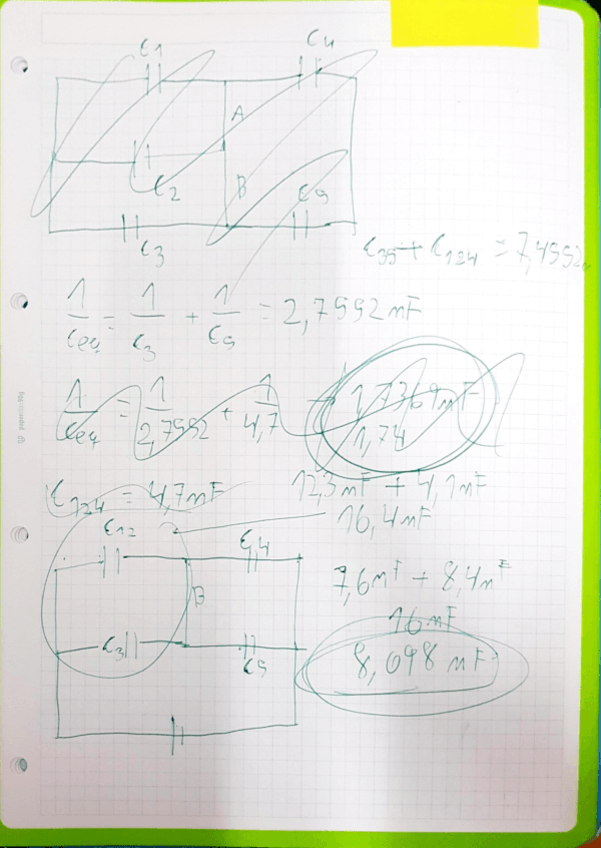 C1
C4
A
C2
B
C5
C3
C35 + C124 = 7,4592
1/Ceq = 1/C3 + 1/C5 = 2,7592 nF
1/Ceq = 1/2,7592 + 1/4,7
1,7369 nF
1,74
C124 = 4,7 nF
12,3 nF + 4,1 nF
16,4 nF
C12
C4
7,6 nF + 8,4 nF
B
16 nF
C3
C5
8,098 nF